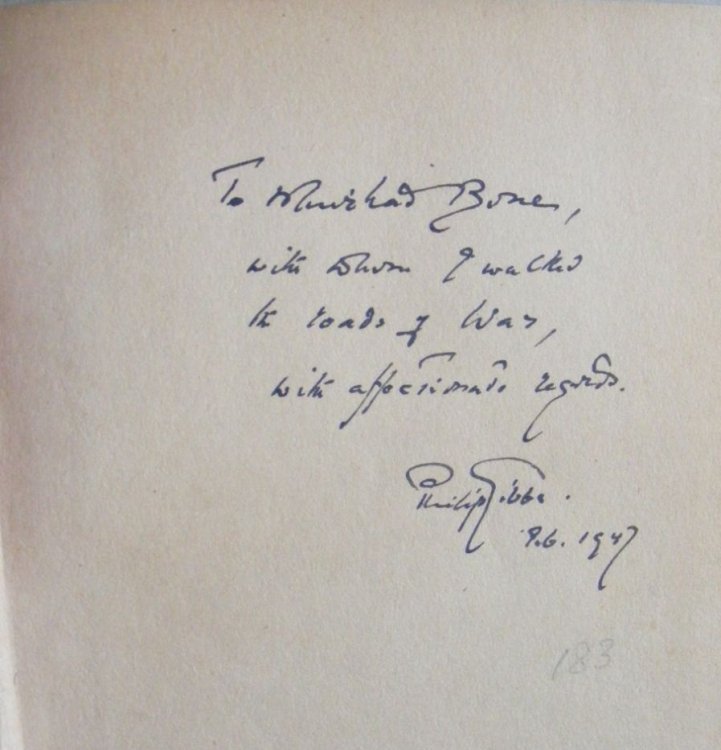 To Muirhead Bone,
with whom I walked
the roads of War,
with affectionate regards.
Philip Gibbs.
9.6.1947
183